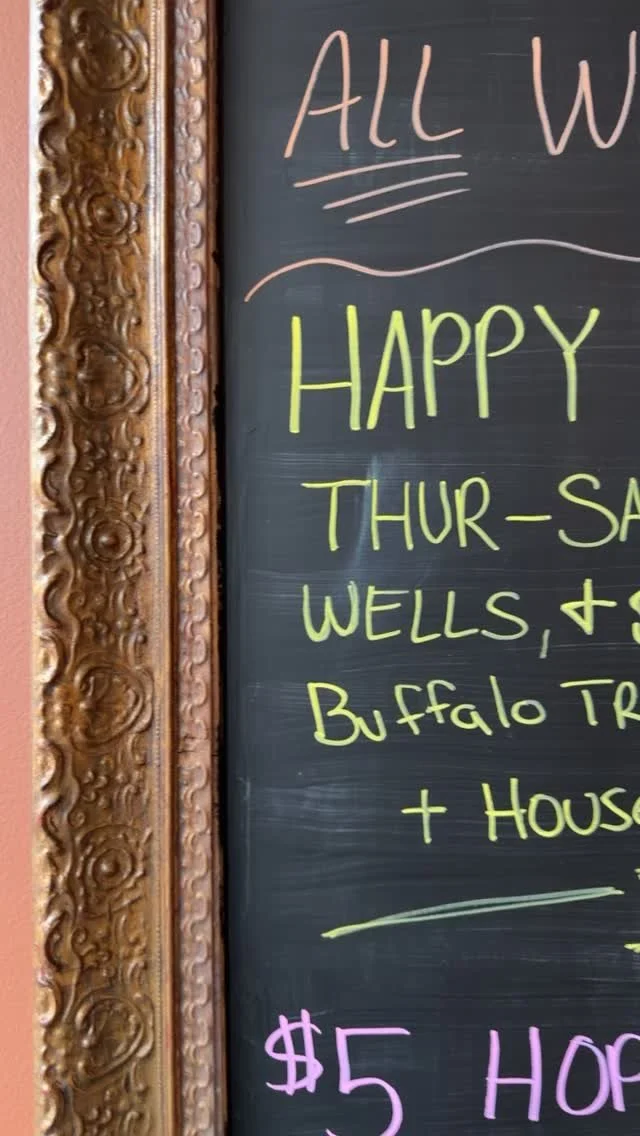 ALL W
HAPPY
THUR-SA
WELLS, + $
Buffalo TR
+ HOUSe
$5 HOP